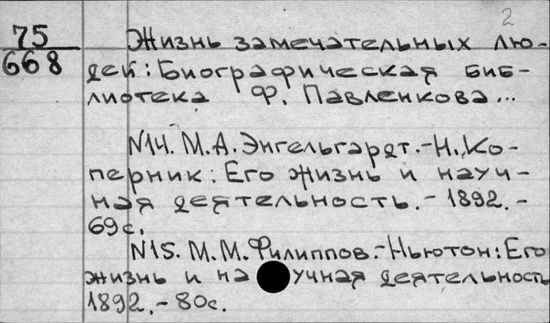 2
75
668
Жизнь замечательных лю-
дей: Биографическая биб-
лиотека Ф. Павленкова...
N14. М.А. Энгельгардт.-Н. Ко-
перник: Его жизнь и науч-
ная деятельность. - 1892. -
69с.
N15. М.М. Филиппов.-Ньютон: Его
жизнь и научная деятельность
1892. - 80с.